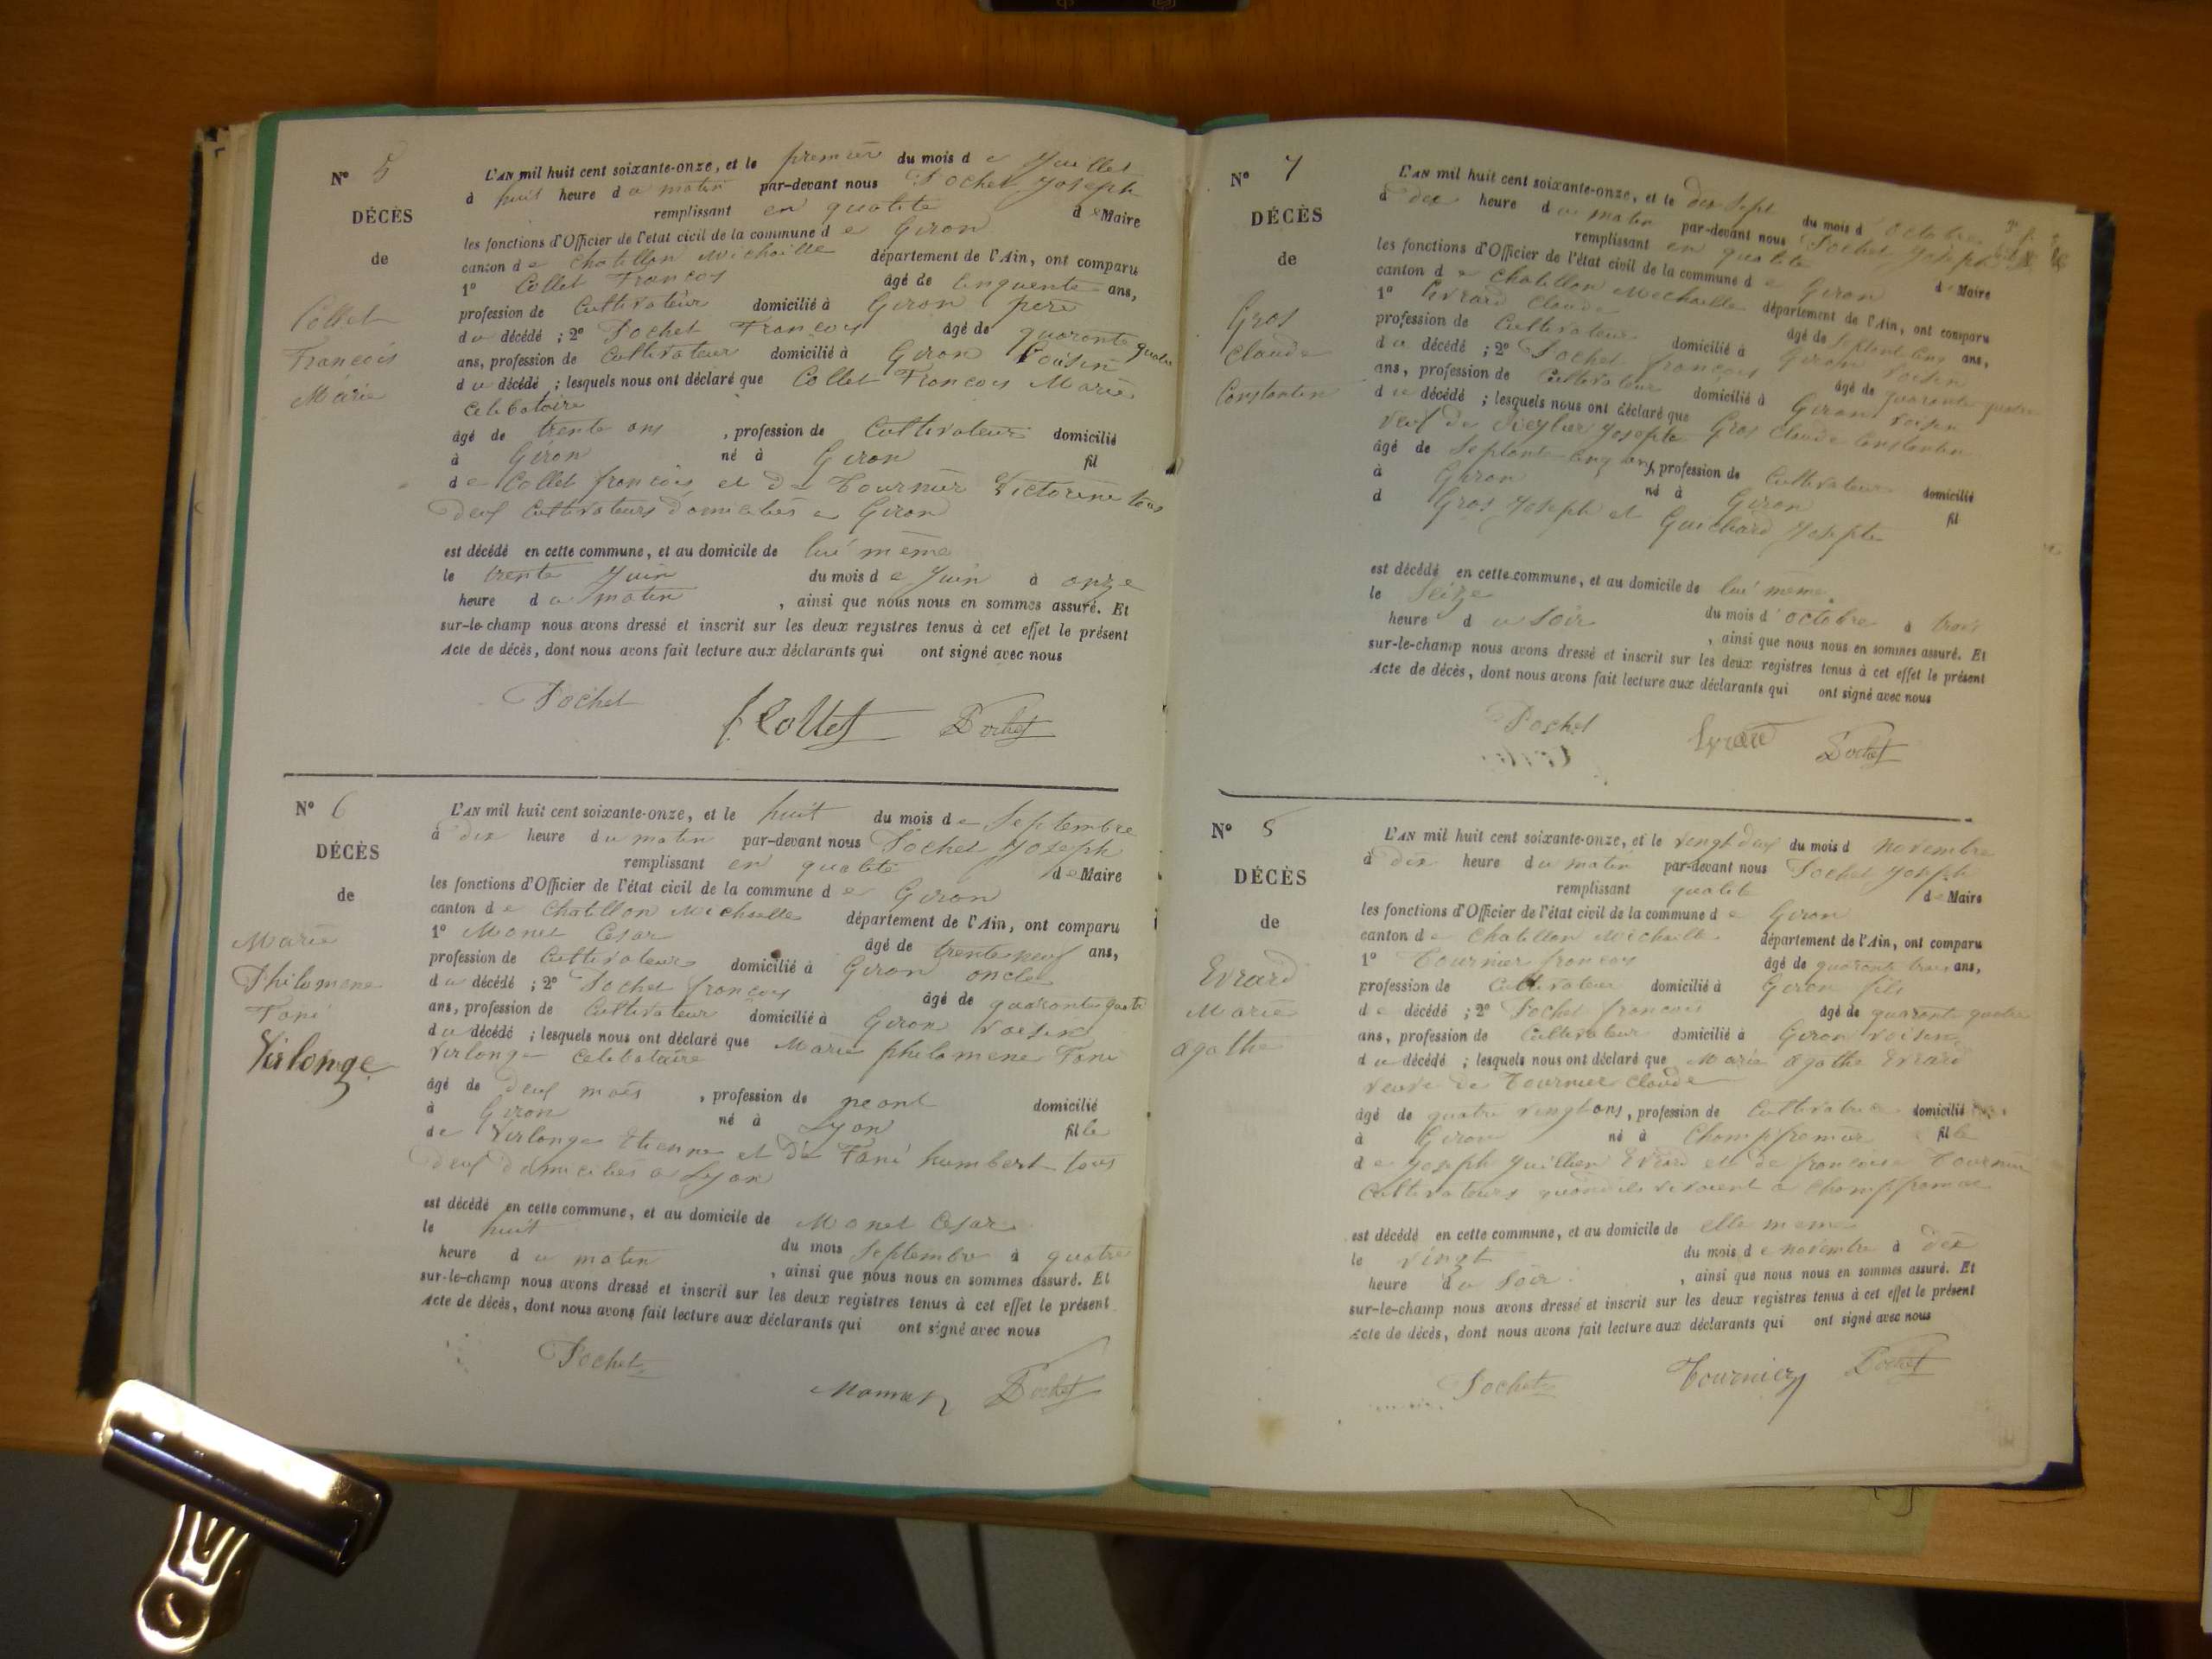 N° 5
DÉCÈS
de
Collet
François
Marie
L'AN mil huit cent soixante-onze, et le premier du mois de Juillet
à huit heure du matin par-devant nous Pochet Joseph
remplissant en qualité de Maire
les fonctions d'Officier de l'état civil de la commune de Giron
canton de Chatillon Michaille département de l'Ain, ont comparu
1° Collet François âgé de cinquente ans,
profession de Cultivateur domicilié à Giron pere
du décédé ; 2° Pochet François âgé de quarante quatre
ans, profession de Cultivateur domicilié à Giron voisin
du décédé ; lesquels nous ont déclaré que Collet François Marie
Celibatoire
âgé de trente ans , profession de Cultivateur domicilié
à Giron né à Giron fil
de Collet françois et de Tournier Victorine tous
deux Cultivateurs domiciliés a Giron
est décédé en cette commune, et au domicile de lui même
le trente Juin du mois de Juin à onze
heure du matin , ainsi que nous nous en sommes assuré. Et
sur-le-champ nous avons dressé et inscrit sur les deux registres tenus à cet effet le présent
Acte de décès, dont nous avons fait lecture aux déclarants qui ont signé avec nous
Pochet f. Collet Pochet
N° 6
DÉCÈS
de
Marie
Philomene
Fani
Virlonge
L'AN mil huit cent soixante-onze, et le huit du mois de Septembre
à dix heure du matin par-devant nous Pochet Joseph
remplissant en qualité de Maire
les fonctions d'Officier de l'état civil de la commune de Giron
canton de Chatillon Michaille département de l'Ain, ont comparu
1° Monet Cesar âgé de trente neuf ans,
profession de Cultivateur domicilié à Giron oncle
du décédé ; 2° Pochet françois âgé de quarante quatre
ans, profession de Cultivateur domicilié à Giron voisin
du décédé ; lesquels nous ont déclaré que Marie philomene Fani
Virlonge Celibataire
âgé de deux mois , profession de neant domicilié
à Giron né à Lyon fille
de Virlonge Etienne et de Fani humbert tous
deux domiciliés a Lyon
est décédé en cette commune, et au domicile de Monet Cesar
le huit du mois Septembre à quatre
heure du matin , ainsi que nous nous en sommes assuré. Et
sur-le-champ nous avons dressé et inscrit sur les deux registres tenus à cet effet le présent
Acte de décès, dont nous avons fait lecture aux déclarants qui ont signé avec nous
Pochet Pochet
N° 7
DÉCÈS
de
Gros
Claude
Constantin
L'AN mil huit cent soixante-onze, et le dix Sept du mois d'octobre
à dix heure du matin par-devant nous Pochet Joseph
remplissant en qualité de Maire
les fonctions d'Officier de l'état civil de la commune de Giron
canton de Chatillon Michaille département de l'Ain, ont comparu
1° Evrard Claude âgé de Septante Cinq ans,
profession de Cultivateur domicilié à Giron voisin
du décédé ; 2° Pochet françois âgé de quarante quatre
ans, profession de Cultivateur domicilié à Giron voisin
du décédé ; lesquels nous ont déclaré que Gros Claude Constantin
veuf de Josepte
âgé de Septante Cinq ans, profession de Cultivateur domicilié
à Giron né à Giron fil
d Gros Joseph et Guichard Josepte
est décédé en cette commune, et au domicile de lui même
le Seize du mois d'octobre à trois
heure du Soir , ainsi que nous nous en sommes assuré. Et
sur-le-champ nous avons dressé et inscrit sur les deux registres tenus à cet effet le présent
Acte de décès, dont nous avons fait lecture aux déclarants qui ont signé avec nous
Pochet Evrard Pochet
N° 8
DÉCÈS
de
Evrard
Marie
agathe
L'AN mil huit cent soixante-onze, et le vingt deux du mois d novembre
à dix heure du matin par-devant nous Pochet Joseph
remplissant qualité de Maire
les fonctions d'Officier de l'état civil de la commune de Giron
canton de Chatillon Michaille département de l'Ain, ont comparu
1° Tournier françois âgé de quarante trois ans,
profession de Cultivateur domicilié à Giron fils
de décédé ; 2° Pochet françois âgé de quarante quatre
ans, profession de Cultivateur domicilié à Giron voisin
du décédé ; lesquels nous ont déclaré que Marie agathe Evrard
veuve de Tournier Claude
âgé de quatre vingt ans, profession de Cultivatrice domicilié
à Giron né à Champfromier fille
de Joseph Evrard et de françoise Tournier
Cultivateurs quand ils vivaient a Champfromier
est décédé en cette commune, et au domicile de elle meme
le vingt du mois de novembre à dix
heure du Soir , ainsi que nous nous en sommes assuré. Et
sur-le-champ nous avons dressé et inscrit sur les deux registres tenus à cet effet le présent
Acte de décès, dont nous avons fait lecture aux déclarants qui ont signé avec nous
Pochet Tournier Pochet